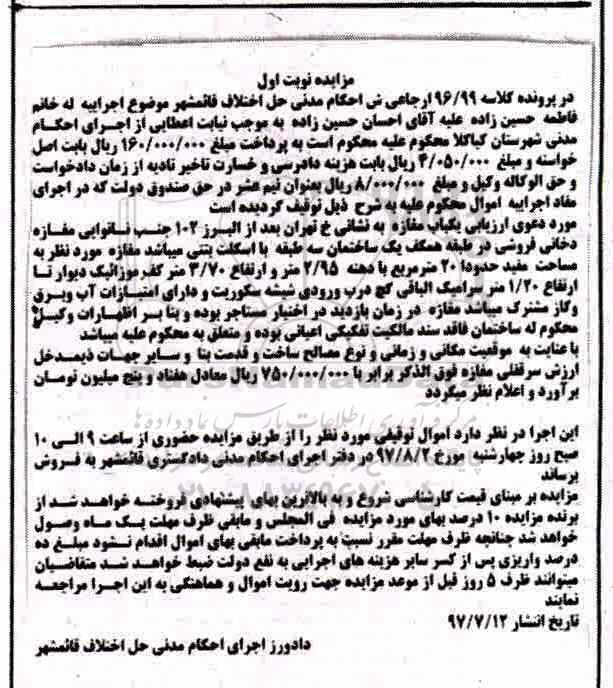 مزایده نوبت اول
در پرونده کلاسه ۹۶/۹۹ ارجاعی ش احکام مدنی حل اختلاف قائمشهر موضوع اجراییه له خانم
فاطمه حسین زاده علیه آقای احسان حسین زاده به موجب نیابت اعطایی از اجرای احکام
مدنی شهرستان کیاکلا محکوم علیه محکوم است به پرداخت مبلغ ۱۶۰/۰۰۰/۰۰۰ ریال بابت اصل
خواسته و مبلغ ۴/۰۵۰/۰۰۰ ریال بابت هزینه دادرسی و خسارت تاخیر تادیه از زمان دادخواست
و حق الوکاله وکیل و مبلغ ۸/۰۰۰/۰۰۰ ریال بعنوان نیم عشر در حق صندوق دولت که در اجرای
مفاد اجراییه اموال محکوم علیه به شرح ذیل توقیف گردیده است
مورد دعوی ارزیابی یکباب مغازه به نشانی خ تهران بعد از البرز ۱۰۲ جنب نانوایی مغازه
دخانی فروشی در طبقه همکف یک ساختمان سه طبقه با اسکلت بتنی میباشد مغازه مورد نظر به
مساحت مفید حدودا ۲۰ مترمربع با دهنه ۲/۹۵ متر و ارتفاع ۳/۷۰ متر کف موزائیک دیوار تا
ارتفاع ۱/۲۰ متر سرامیک الباقی گچ درب ورودی شیشه سکوریت و دارای امتیازات آب وبرق
وگاز مشترک میباشد مغازه در زمان بازدید در اختیار مستاجر بوده و بنا بر اظهارات وکیل
محکوم له ساختمان فاقد سند مالکیت تفکیکی اعیانی بوده و متعلق به محکوم علیه میباشد
با عنایت به موقعیت مکانی و زمانی و نوع مصالح ساخت و قدمت بنا و سایر جهات ذیمدخل
ارزش سرقفلی مغازه فوق الذکر برابر با ۷۵۰/۰۰۰/۰۰۰ ریال معادل هفتاد و پنج میلیون تومان
برآورد و اعلام نظر میگردد
این اجرا در نظر دارد اموال توقیفی مورد نظر را از طریق مزایده حضوری از ساعت ۹ الی ۱۰
صبح روز چهارشنبه مورخ ۹۷/۸/۲ در دفتر اجرای احکام مدنی دادگستری قائمشهر به فروش
برساند
مزایده بر مبنای قیمت کارشناسی شروع و به بالاترین بهای پیشنهادی فروخته خواهد شد از
برنده مزایده ۱۰ درصد بهای مورد مزایده فی المجلس و مابقی ظرف مهلت یک ماه وصول
خواهد شد چنانچه ظرف مهلت مقرر نسبت به پرداخت مابقی بهای اموال اقدام نشود مبلغ ده
درصد واریزی پس از کسر سایر هزینه های اجرایی به نفع دولت ضبط خواهد شد متقاضیان
میتوانند ظرف ۵ روز قبل از موعد مزایده جهت رویت اموال و هماهنگی به این اجرا مراجعه
نمایند
تاریخ انتشار ۹۷/۷/۱۲
دادورز اجرای احکام مدنی حل اختلاف قائمشهر